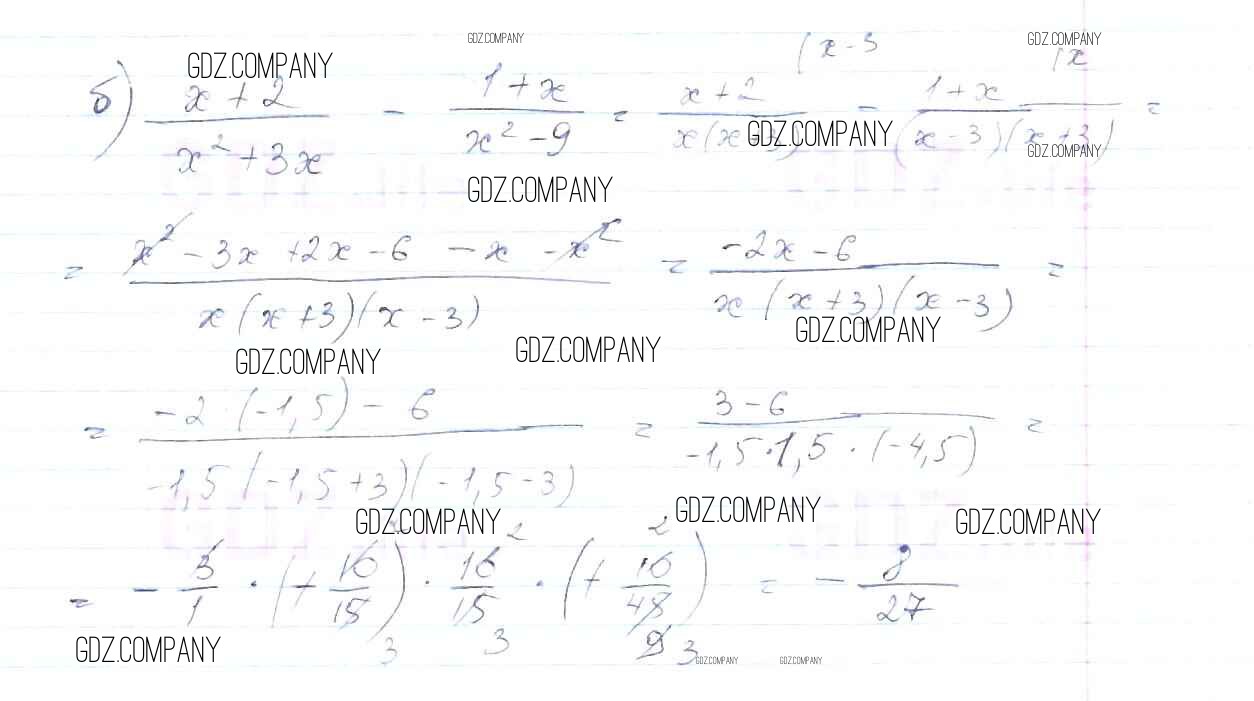 GDZ.COMPANY
(x - 3 GDZ.COMPANY
GDZ.COMPANY (x
б) (x + 2)/(x² + 3x) - (1 + x)/(x² - 9) = (x + 2)/(x(x+3)) - (1 + x)/((x - 3)(x + 3)) =
GDZ.COMPANY
GDZ.COMPANY
GDZ.COMPANY
= (x² - 3x + 2x - 6 - x - x²)/(x(x+3)(x - 3)) = (-2x - 6)/(x(x+3)(x - 3)) =
GDZ.COMPANY
GDZ.COMPANY
GDZ.COMPANY
= (-2·(-1,5) - 6)/(-1,5(-1,5+3)(-1,5-3)) = (3 - 6)/(-1,5·1,5·(-4,5)) =
GDZ.COMPANY
GDZ.COMPANY
GDZ.COMPANY
= - 3/1 · (+ 10/15) · 10/15 · (+ 10/45) = - 8/27
GDZ.COMPANY
GDZ.COMPANY GDZ.COMPANY